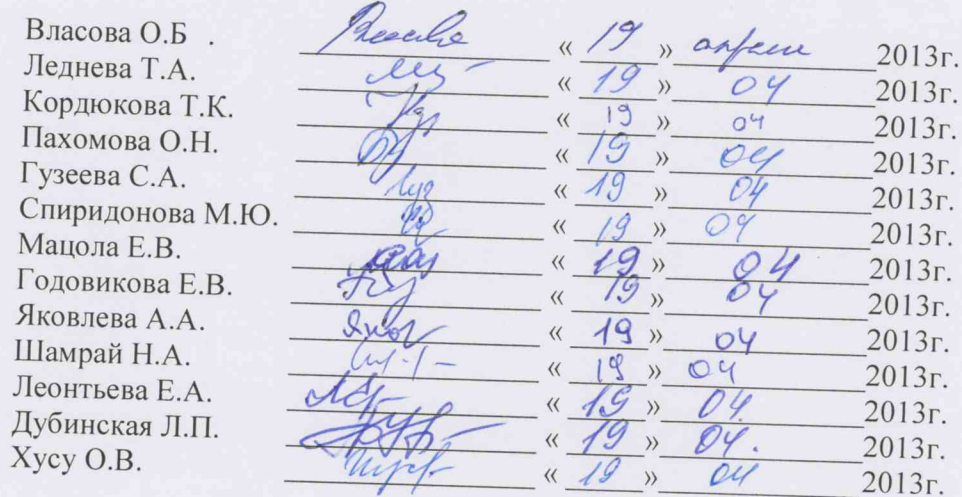 Власова О.Б . Власова « 19 » апреля 2013г.
Леднева Т.А. « 19 » 04 2013г.
Кордюкова Т.К. « 19 » 04 2013г.
Пахомова О.Н. « 19 » 04 2013г.
Гузеева С.А. Гуз « 19 » 04 2013г.
Спиридонова М.Ю. « 19 » 04 2013г.
Мацола Е.В. « 19 » 04 2013г.
Годовикова Е.В. « 19 » 04 2013г.
Яковлева А.А. Яков « 19 » 04 2013г.
Шамрай Н.А. « 19 » 04 2013г.
Леонтьева Е.А. « 19 » 04. 2013г.
Дубинская Л.П. « 19 » 04. 2013г.
Хусу О.В. « 19 » 04 2013г.